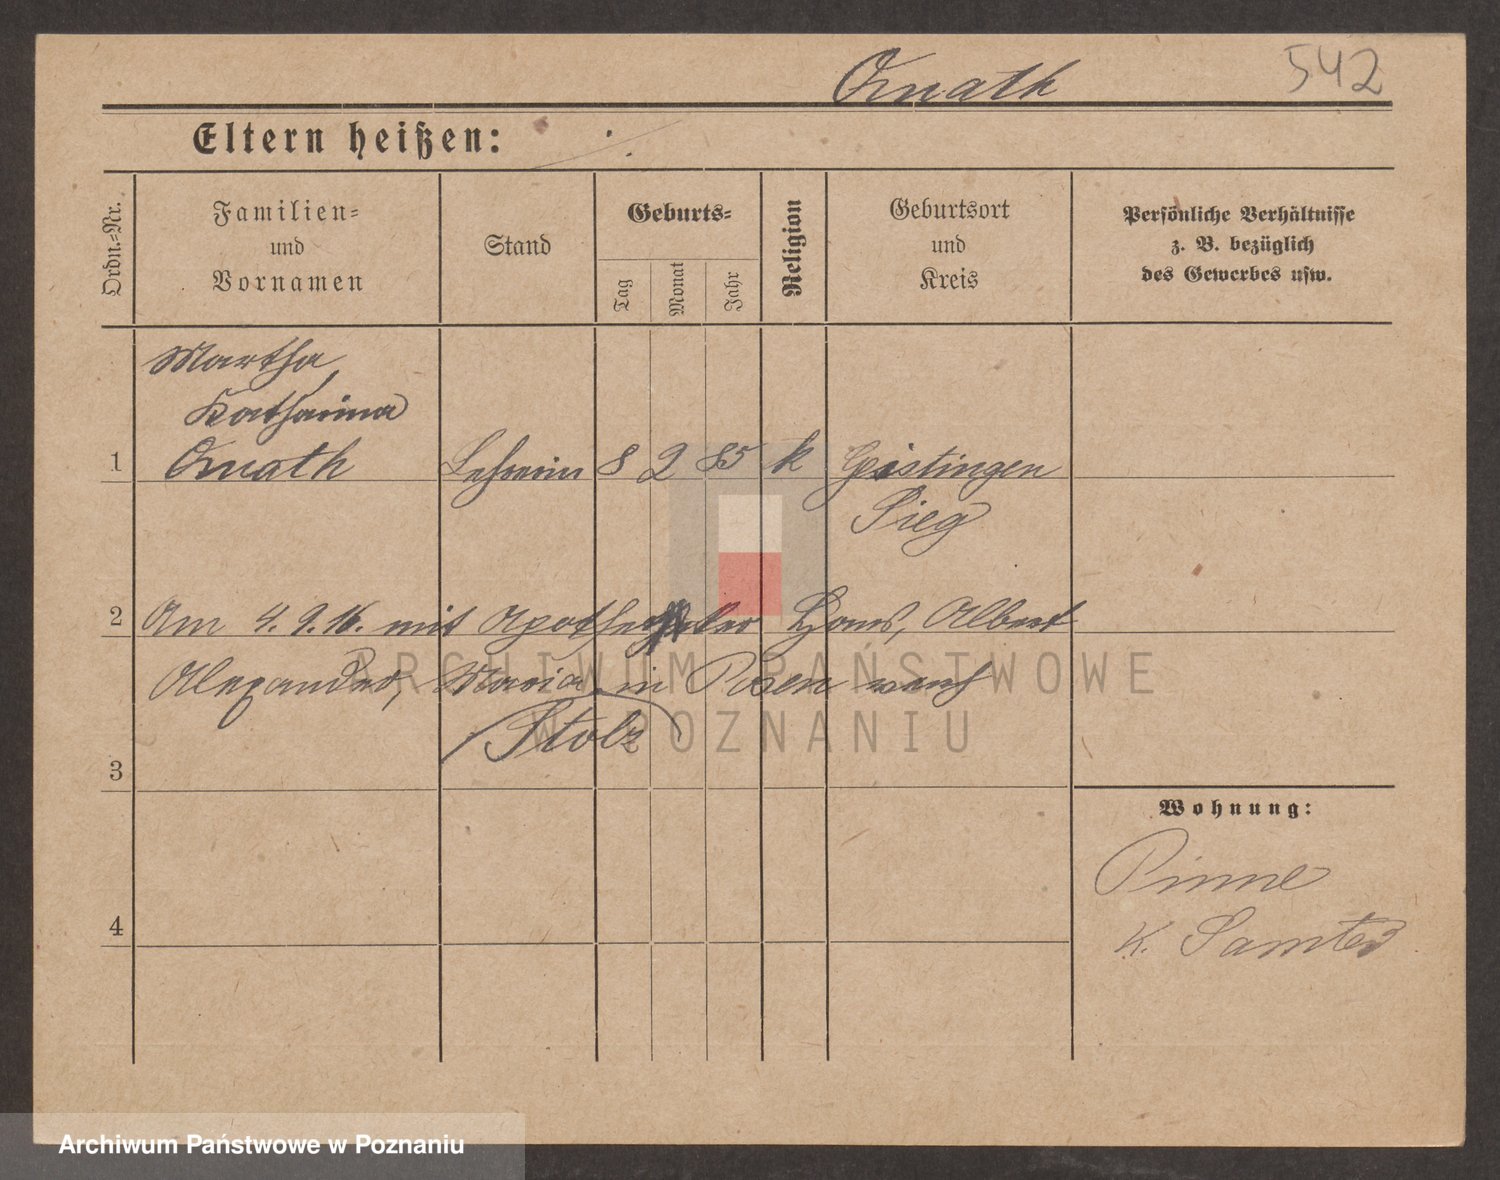 Ornath 542
Eltern heißen:
Ordn.=Nr.
Familien=
und
Vornamen
Stand
Geburts=
Tag
Monat
Jahr
Religion
Geburtsort
und
Kreis
Persönliche Verhältnisse
z. B. bezüglich
des Gewerbes usw.
Martha
Katharina
1 Ornath Lehrerin 8 2 85 k Geistingen
Sieg
2 Am 4. 9. 16. mit Apotheker Hans, Albert
Alexander, Maria in Posen verh
Stolz
3
Wohnung:
Pinne
K. Samter
4
ARCHIWUM PAŃSTWOWE
W POZNANIU
Archiwum Państwowe w Poznaniu